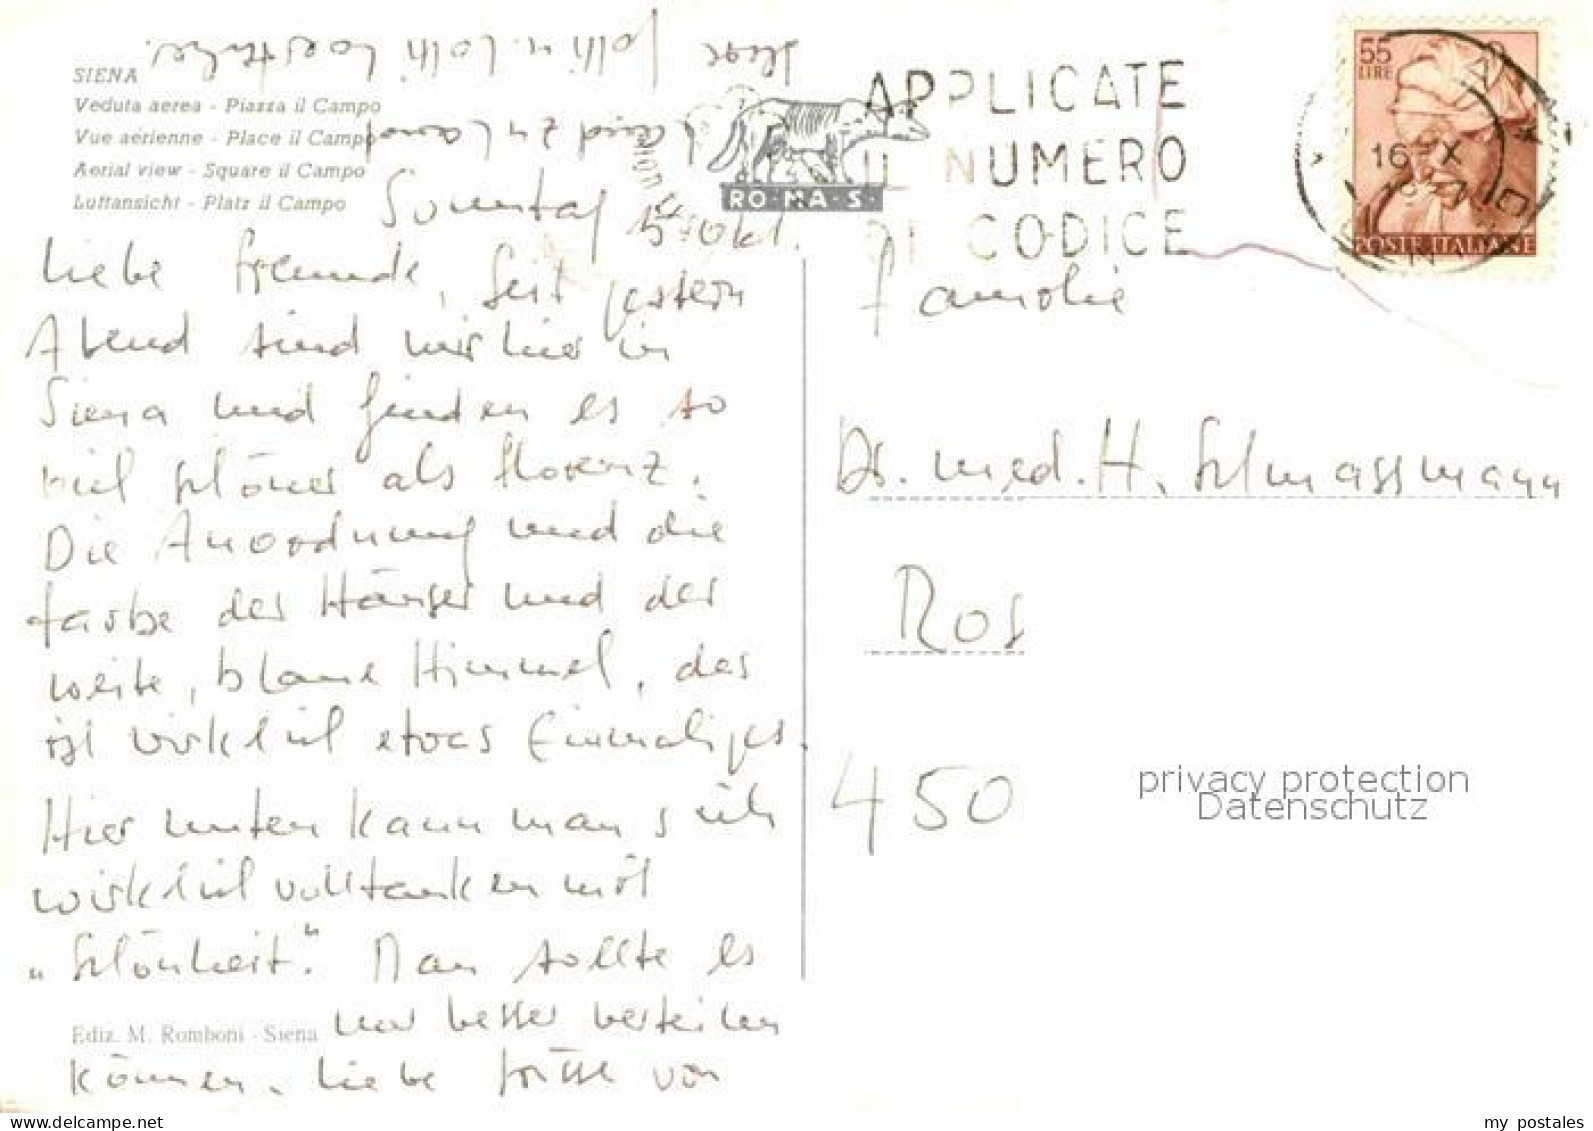 SIENA
Veduta aerea - Piazza il Campo
Vue aérienne - Place il Campo
Aerial view - Square il Campo
Luftansicht - Platz il Campo
Sonntag 15. Okt.
Liebe Freunde, seit gestern
Abend sind wir hier in
Siena und finden es so
viel schöner als Florenz.
Die Anordnung und die
Farbe der Häuser und der
weite, blaue Himmel, das
ist wirklich etwas Einmaliges.
Hier unten kann man sich
wirklich volltanken mit
„Schönheit". Man sollte es
nur besser verteilen
können. Liebe Grüße von
Land zu Land
u. Lotti
Ediz. M. Romboni - Siena
RO·MA·S·
APPLICATE
IL NUMERO
DI CODICE
55
LIRE
POSTE ITALIANE
16 X
Familie
Dr. med. H. Schmassmann
Ros
450
privacy protection
Datenschutz
my_postales